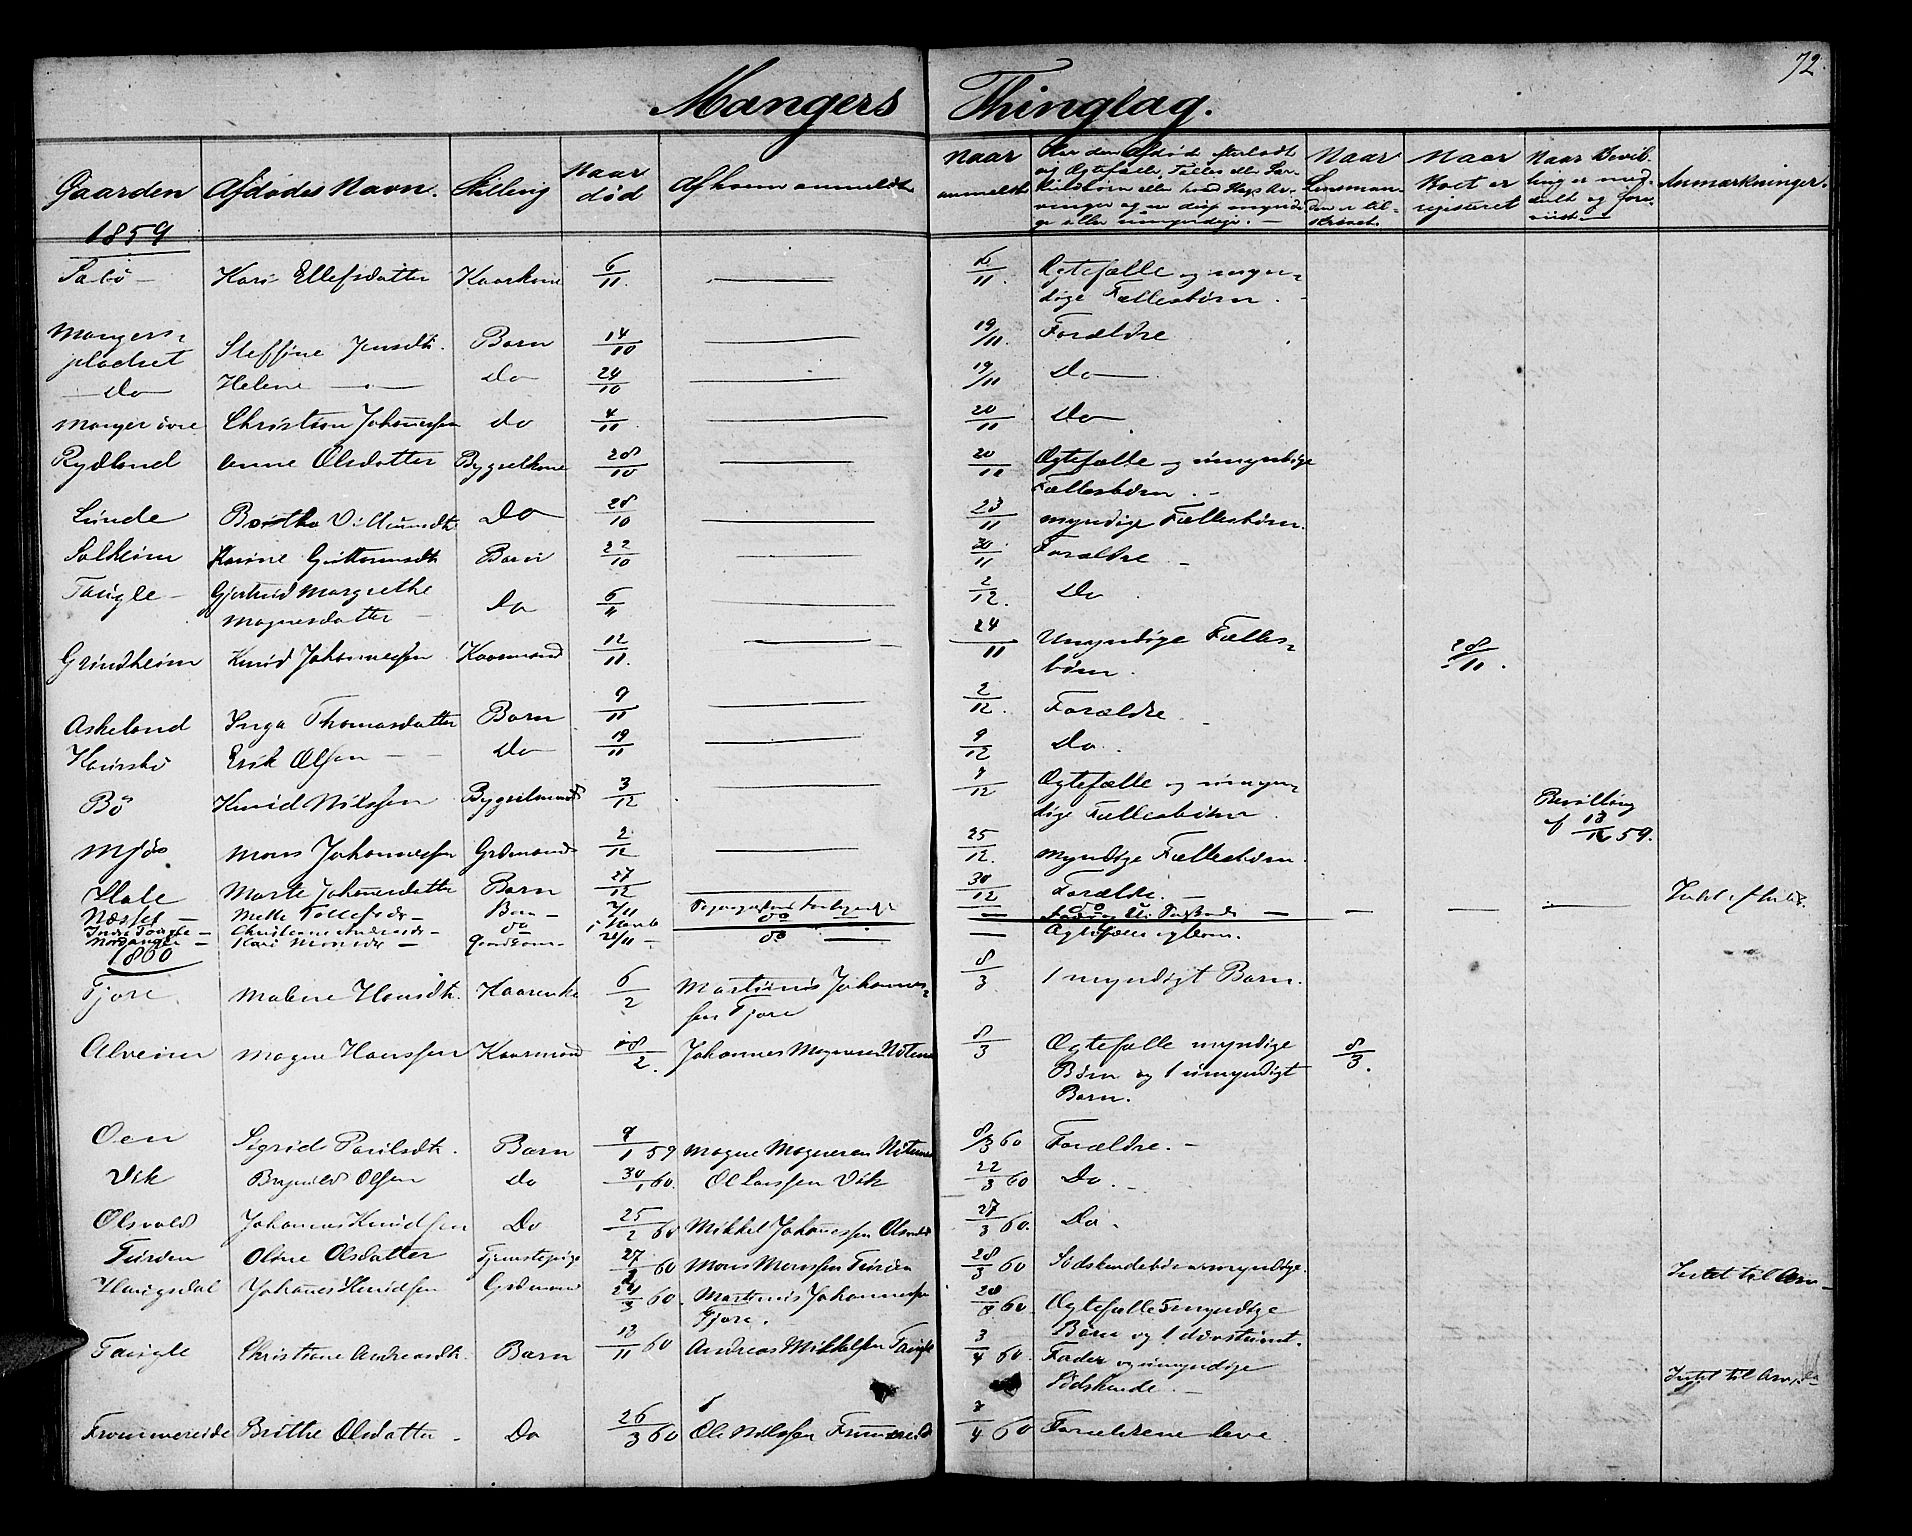 72.
Mangers Thinglag.
Gaarden | Afdødes Navn. | Stilling | Naar død | Af hvem anmeldt | Naar anmeldt | Har den Afdøde efterladt sig Ægtefælle, Fælles eller Særkilsbørn eller hvad Slags Arvinger og ere disse myndige eller umyndige. | Naar Lensmanden er tilskrevet. | Naar Boet er registeret | Naar Bevilling er meddelt og forevist | Anmærkninger.
1859
Sæbø | Kari Ellefsdatter | Kaarkone | 6/11. | — | 6/11. | Ægtefælle og myndige Fællesbørn.
Mangerspladset | Steffine Jensdtr. | Barn | 14/10 | — | 19/11. | Forældre
Do | Helene — | Do | 24/10 | — | 19/11 | Do
Manger øvre | Christian Johannessen | do | 4/11 | — | 20/11 | Do
Rydland | Anne Olsdatter | Bygselkone | 28/10 | — | 20/11 | Ægtefælle og umyndige Fællesbørn.
Lunde | Birthe Villumsdtr | Do | 28/10 | — | 23/11 | myndige Fællesbørn.
Solheim | Karine Guttormsdtr | Barn | 22/10 | — | 30/11 | Forældre
Tougle | Gjertrud Margrethe Magnesdatter | Do | 6/11 | — | 2/12. | Do.
Grindheim | Knud Johannessen | Kaarmand | 12/11. | — | 24/11 | Umyndige Fællesbørn. | 28/11.
Askeland | Inga Thomasdatter | Barn | 9/11 | — | 2/12. | Forældre
Erik Olsen | Do | 19/11 | — | 9/12 | Do.
Bø | Knud Nilssen | Bygselmand | 3/12 | — | 7/12 | Ægtefælle og umyndige Fællesbørn. | Bevilling af 13/12 59.
Mjøs | Mons Johannessen | Grdmand | 2/12 | — | 25/12. | myndige Fællesbørn.
Marte Johannesdatter | Barn | 27/12 | — | 30/12 | Forældre.
Næsset | Mette Tollefsdr | Barn | 7/11
Indre Tougle | Christiane Andreasdr | do | do
Nordanger | Kari Monsdr | Gaardkone | 21/11 | do | — | Ægtefælle og Børn.
1860
Fjore | Malene Hansdtr. | Kaarenke | 6/2 | Martinus Johannessen Fjore | 8/3 | 1 myndigt Barn.
Alveim | Magne Hanssen | Kaarmand | 18/2. | Johannes Magnesen | 8/3 | Ægtefælle myndige Børn og 1 umyndigt Barn. | 8/3.
Oen | Sigrid Poulsdtr. | Barn | 9/1 59 | Magne Magnesen | 8/3 60 | Forældre.
Vik | Brynild Olsen | Do | 30/1 60. | Ol Larssen Vik | 22/3 60 | Do.
Olsvold | Johannes Knudsen | Do | 25/2 60 | Mikkel Johannessen Olsvold | 27/3 60. | Do.
Turden | Oline Olsdatter | Tjenestepige | 27/2 60 | Mons Monssen Turden | 28/3 60 | Sødskendebørn umyndige. | Intet til Arv
Hougsdal | Johannes Knudsen | Grdmand | 24/3 60. | Martinus Johannessen Fjore. | 28/3 60. | Ægtefælle 5 myndige Børn og 1 døvstumt.
Tougle | Christiane Andreasdtr. | Barn | 13/11 60 | Andreas Mikkelsen Tougle | 3/4 60. | Fader og umyndige Sødskende. | Intet til Arv.
Frommereide | Brithe Olsdatter. | Do | 26/3 60 | Ole Nilssen | 3/4 60 | Forældrene leve.